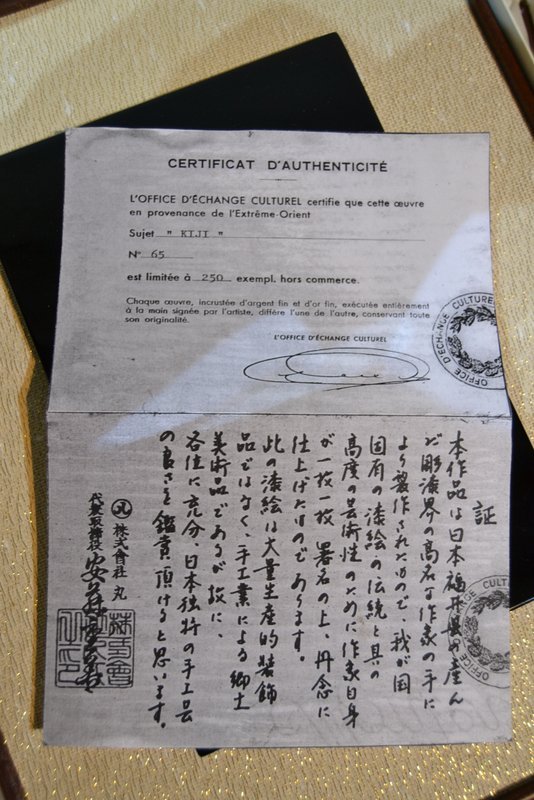 CERTIFICAT D'AUTHENTICITÉ
L'OFFICE D'ÉCHANGE CULTUREL certifie que cette œuvre
en provenance de l'Extrême-Orient
Sujet " KIJI "
N° 65
est limitée à 250 exempl. hors commerce.
Chaque œuvre, incrustée d'argent fin et d'or fin, exécutée entièrement
à la main signée par l'artiste, diffère l'une de l'autre, conservant toute
son originalité.
L'OFFICE D'ÉCHANGE CULTUREL
OFFICE D'ÉCHANGE CULTUREL
証
本作品は日本福井県の産ん
だ彫漆界の高名な作家の手に
より製作されたもので、我が国
固有の漆絵の伝統と其の
高度の芸術性のために作家自身
が一枚一枚署名の上、丹念に
仕上げたものであります。
此の漆絵は大量生産的装飾
品ではなく、手工業による郷土
美術品であるが故に、
各位に充分、日本独特の手工芸
の良さを鑑賞頂けると思います。
株式會社 丸
代表取締役 安
OFFICE D'ÉCHANGE